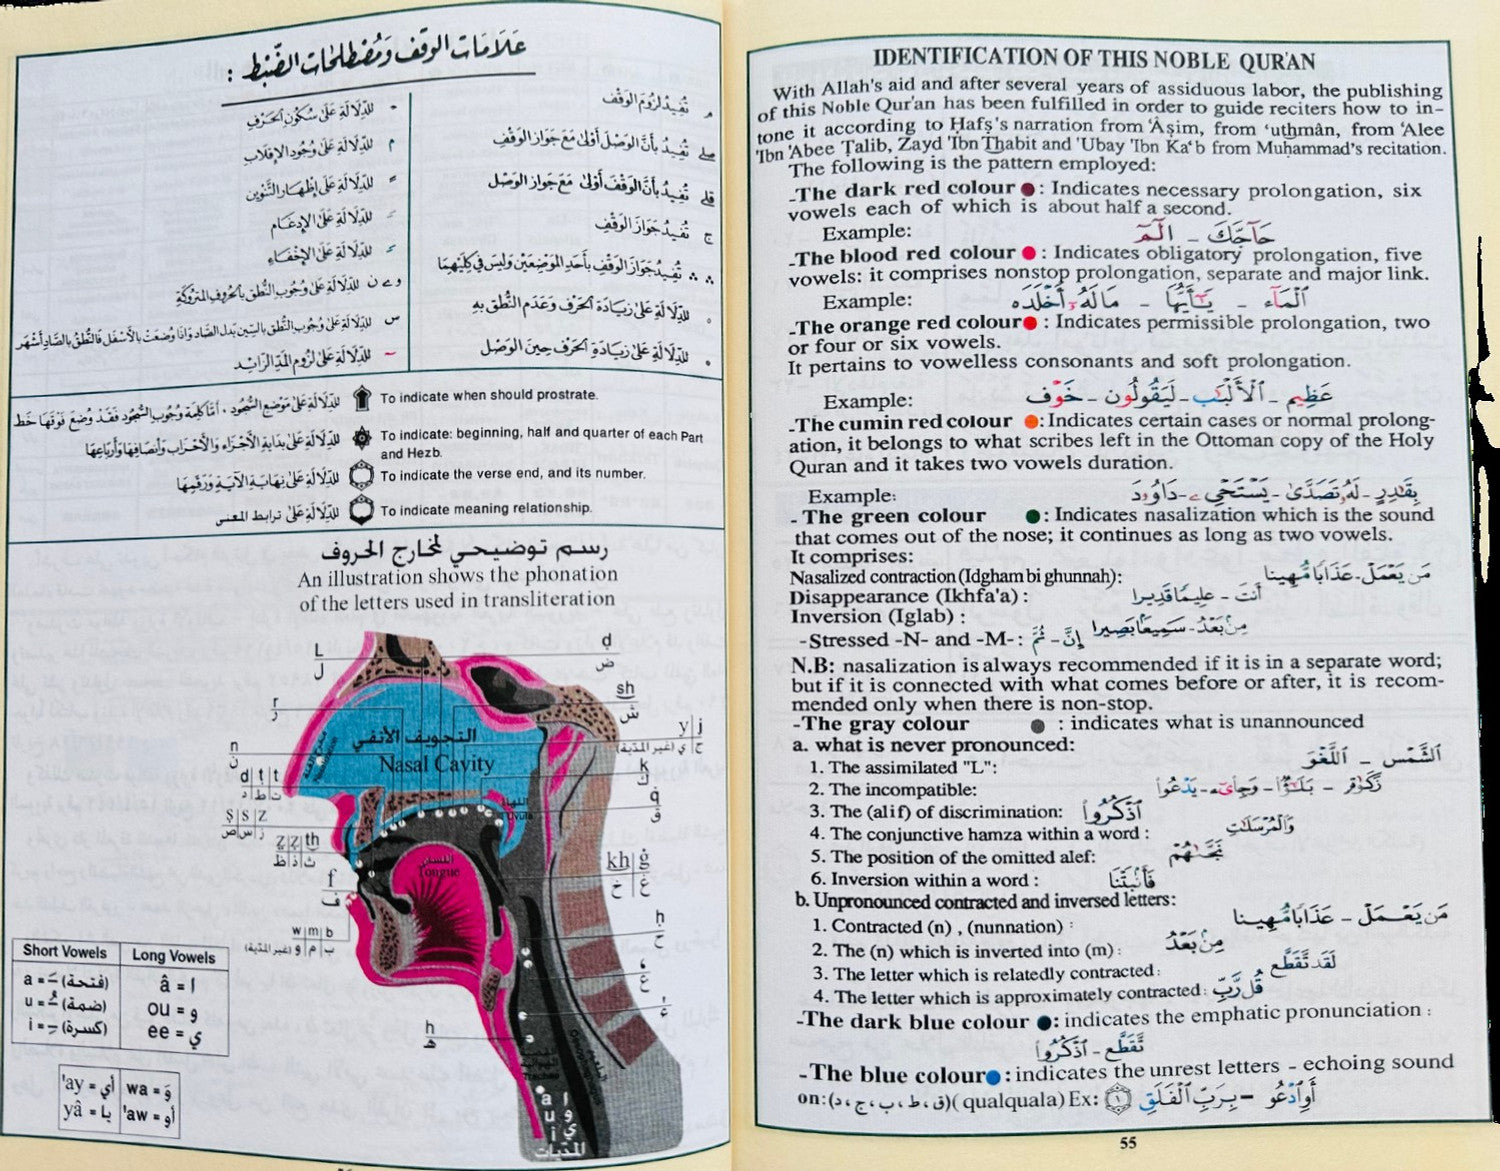 عَلَامَات الوَقف وَمُصْطلحَات الضَّبْط :
م تُفِيدُ لُزُومَ الوَقْف
صلى تُفِيدُ بأنَّ الوَصْلَ أَوْلَى مَعَ جَوَازِ الوَقْفِ
قلى تُفِيدُ بأنَّ الوَقْفَ أَوْلَى مَعَ جَوَازِ الوَصْلِ
ج تُفِيدُ جَوَازَ الوَقْفِ
∴ ∴ تُفِيدُ جَوَازَ الوَقْفِ بأَحَدِ المَوْضِعَيْنِ وَليسَ في كِلَيْهِمَا
للدِّلَالَةِ عَلَى زِيَادَةِ الحَرْفِ وَعَدَمِ النُّطْقِ بِهِ
للدِّلَالَةِ عَلَى زِيَادَةِ الحَرْفِ حِينَ الوَصْلِ
للدِّلَالَةِ عَلَى سُكُونِ الحَرْفِ
م للدِّلَالَةِ عَلَى وُجُودِ الإقْلَابِ
للدِّلَالَةِ عَلَى إِظْهَارِ التَّنْوِينِ
للدِّلَالَةِ عَلَى الإدْغَامِ
للدِّلَالَةِ عَلَى الإخْفَاءِ
للدِّلَالَةِ عَلَى وُجُوبِ النُّطْقِ بِالحُرُوفِ المَتْرُوكَةِ
س للدِّلَالَةِ عَلَى وُجُوبِ النُّطْقِ بِالسِّينِ بَدَلَ الصَّادِ وَإذَا وُضِعَتْ بِالأَسْفَلِ فَالنُّطْقُ بِالصَّادِ أَشْهَر
للدِّلَالَةِ عَلَى لُزُومِ المَدِّ الزَّائِدِ
للدِّلَالَةِ عَلَى مَوْضِعِ السُّجُودِ ، أَمَّا كَلِمَة وُجُوبِ السُّجُودِ فَقَدْ وُضِعَ فَوْقَهَا خَط
To indicate when should prostrate.
للدِّلَالَةِ عَلَى بدَايَةِ الأَجْزَاءِ وَالأَحْزَابِ وَأَنْصَافِهَا وَأَرْبَاعِهَا
To indicate: beginning, half and quarter of each Part
and Hezb.
للدِّلَالَةِ عَلَى نِهَايَةِ الآيَةِ وَرَقْمِهَا
To indicate the verse end, and its number.
للدِّلَالَةِ عَلَى ترابط المعنى
To indicate meaning relationship.
رسم توضيحي لمخارج الحروف
An illustration shows the phonation
of the letters used in transliteration
L
ل
r
ر
n
ن
d t t
د ط ت
ṣ s z
ص س ز
ẓ z th
ظ ذ ث
f
ف
w m b
ب م و (غير المدّية)
h
هـ
ḍ
ض
sh
ش
y j
ي (غير المدّية) ج
k
ك
q
ق
kh g
خ غ
ḥ
ح
ع
ء
التجويف الأنفي
Nasal Cavity
اللهاة
Uvula
اللسان
Tongue
Trachea
a ا
u و
i ي
المدّيات
Short Vowels Long Vowels
a = (فتحة) â = ا
u = (ضمة) ou = و
i = (كسرة) ee = ي
'ay = أي wa = وَ
yâ = يا 'aw = أو
IDENTIFICATION OF THIS NOBLE QUR'AN
With Allah's aid and after several years of assiduous labor, the publishing
of this Noble Qur'an has been fulfilled in order to guide reciters how to in-
tone it according to Ḥafṣ's narration from 'Âṣim, from ‘uthmân, from 'Alee
'Ibn 'Abee Ṭalib, Zayd 'Ibn Thabit and 'Ubay 'Ibn Ka‘b from Muḥammad's recitation.
The following is the pattern employed:
-The dark red colour : Indicates necessary prolongation, six
vowels each of which is about half a second.
Example: حَآجَّكَ - الٓمٓ
-The blood red colour : Indicates obligatory prolongation, five
vowels: it comprises nonstop prolongation, separate and major link.
Example: الْمَآءِ - يَٰٓأَيُّهَا - مَالَهُۥٓ أَخْلَدَهُ
-The orange red colour : Indicates permissible prolongation, two
or four or six vowels.
It pertains to vowelless consonants and soft prolongation.
Example: عَظِيم - الْأَلْبَٰب - لَيَقُولُون - خَوْف
-The cumin red colour : Indicates certain cases or normal prolong-
ation, it belongs to what scribes left in the Ottoman copy of the Holy
Quran and it takes two vowels duration.
Example: بِقَٰدِرٍ - لَهُۥ تَصَدَّىٰ - يَسْتَحْىِۦ - دَاوُۥدَ
- The green colour : Indicates nasalization which is the sound
that comes out of the nose; it continues as long as two vowels.
It comprises:
Nasalized contraction (Idgham bi ghunnah): مَن يَعْمَلْ - عَذَابًا مُّهِينًا
Disappearance (Ikhfa'a) : أَنتَ - عَلِيمًا قَدِيرًا
Inversion (Iglab) : مِنۢ بَعْدُ - سَمِيعًۢا بَصِيرًا
-Stressed -N- and -M- : إِنَّ - ثُمَّ
N.B: nasalization is always recommended if it is in a separate word;
but if it is connected with what comes before or after, it is recom-
mended only when there is non-stop.
-The gray colour : indicates what is unannounced
a. what is never pronounced:
1. The assimilated "L": الشَّمْس - اللَّغْو
2. The incompatible: زَكَوٰة - بَلَٰٓؤٌا - وَجِاْىٓءَ - يَدْعُوا
3. The (alif) of discrimination: اذْكُرُوا
4. The conjunctive hamza within a word : وَالْمُرْسَلَٰتِ
5. The position of the omitted alef: نَجَّىٰهُمْ
6. Inversion within a word : فَأَنۢبَتْنَا
b. Unpronounced contracted and inversed letters:
1. Contracted (n) , (nunnation) : مَن يَعْمَلْ - عَذَابًا مُّهِينًا
2. The (n) which is inverted into (m) : مِنۢ بَعْدُ
3. The letter which is relatedly contracted : لَقَد تَّقَطَّع
4. The letter which is approximately contracted : قُل رَّبِّ
-The dark blue colour : indicates the emphatic pronunciation :
تَّقَطَّع - اذْكُرُوا
-The blue colour : indicates the unrest letters - echoing sound
on: (ق، ط، ب، ج، د) ( qualquala) Ex: ١ بِرَبِّ الْفَلَقِ - أَوِ ادْعُو
55